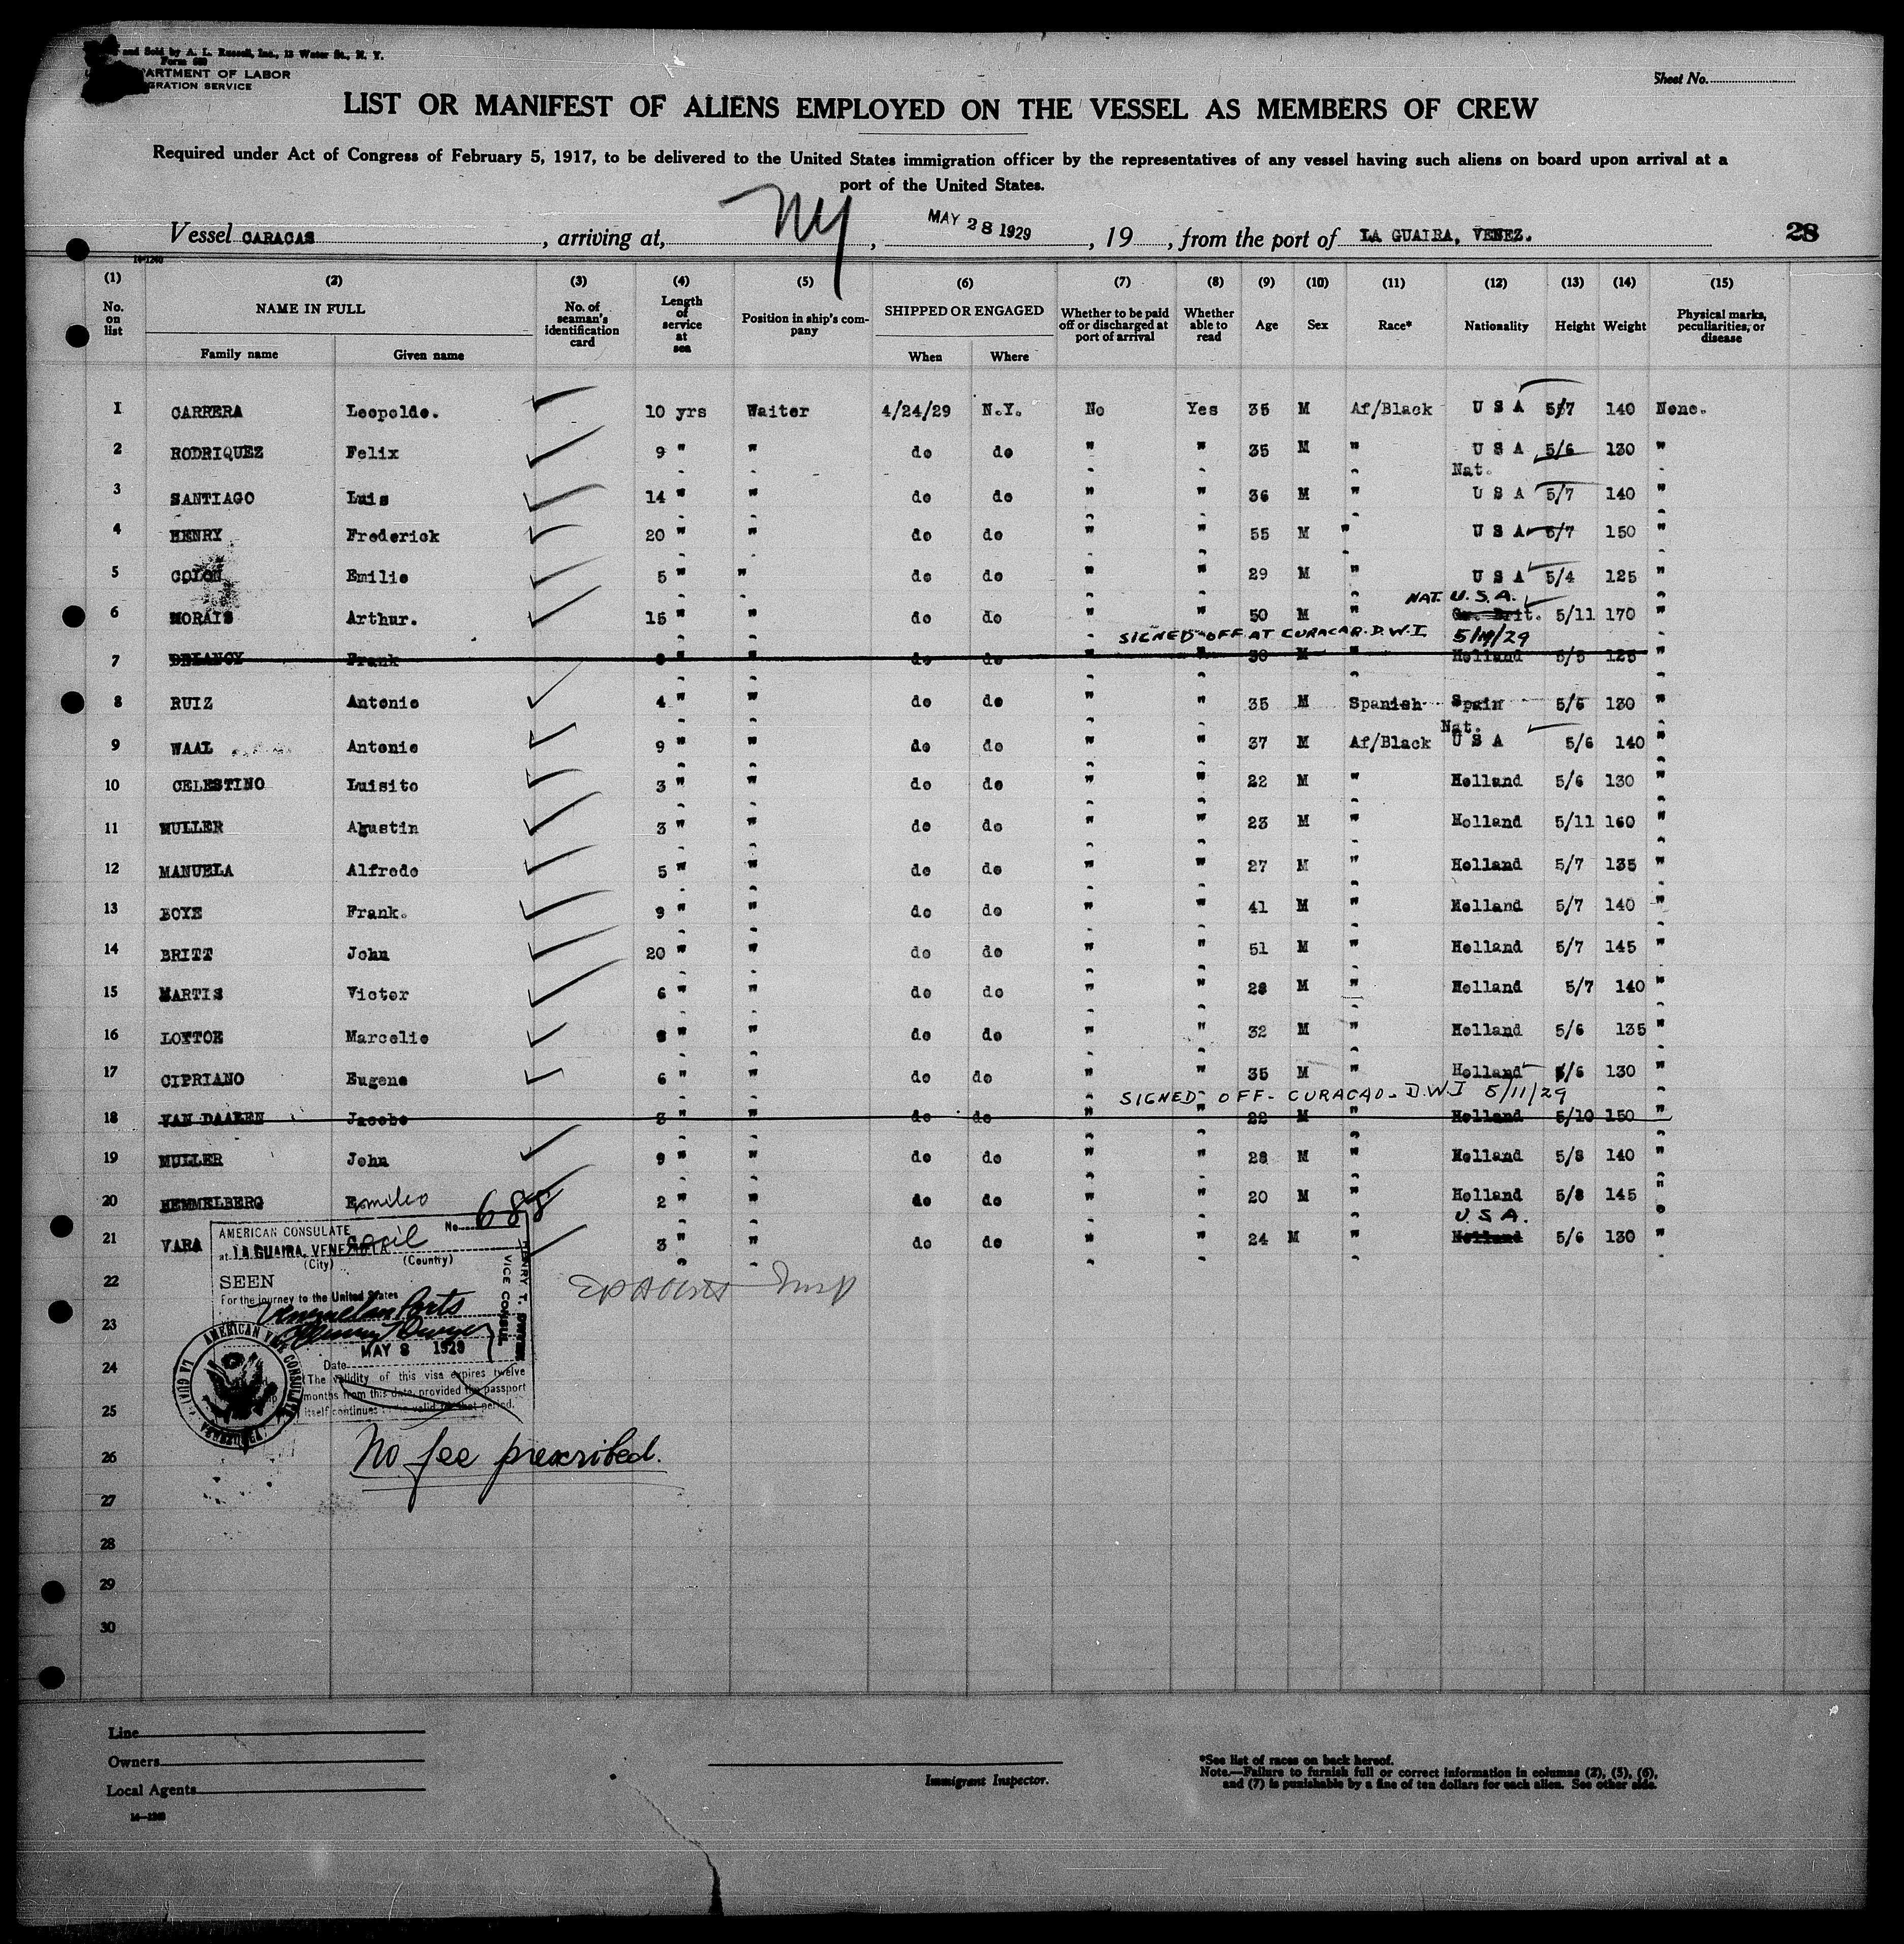 and Sold by A. L. Russell, Inc., 13 Water St., N. Y.
Form 689
ARTMENT OF LABOR
GRATION SERVICE
Sheet No.
LIST OR MANIFEST OF ALIENS EMPLOYED ON THE VESSEL AS MEMBERS OF CREW
Required under Act of Congress of February 5, 1917, to be delivered to the United States immigration officer by the representatives of any vessel having such aliens on board upon arrival at a
port of the United States.
Vessel CARACAS, arriving at, NY, MAY 28 1929, 19, from the port of LA GUAIRA, VENEZ. 28
(1) (2) (3) (4) (5) (6) (7) (8) (9) (10) (11) (12) (13) (14) (15)
No. on list NAME IN FULL Family name Given name No. of seaman's identification card Length of service at sea Position in ship's company SHIPPED OR ENGAGED When Where Whether to be paid off or discharged at port of arrival Whether able to read Age Sex Race* Nationality Height Weight Physical marks, peculiarities, or disease
1 CARRERA Leopoldo. 10 yrs Waiter 4/24/29 N.Y. No Yes 35 M Af/Black U S A 5/7 140 None.
2 RODRIQUEZ Felix 9 " " do do " " 35 M " U S A 5/6 130 "
Nat.
3 SANTIAGO Luis 14 " " do do " " 36 M " U S A 5/7 140 "
4 HENRY Frederick 20 " " do do " " 55 M " U S A 5/7 150 "
5 COLON Emilio 5 " " do do " " 29 M " U S A 5/4 125 "
NAT. U.S.A.
6 MORAIS Arthur. 15 " " do do " " 50 M " Gr. Brit. 5/11 170 "
SIGNED OFF AT CURACAO. D.W.I. 5/19/29
7 DELANCY Frank " " do do " " 30 M " Holland 5/5 125 "
8 RUIZ Antonio 4 " " do do " " 35 M Spanish Spain 5/6 130 "
Nat.
9 WAAL Antonio 9 " " do do " " 37 M Af/Black U S A 5/6 140 "
10 CELESTINO Luisito 3 " " do do " " 22 M " Holland 5/6 130 "
11 MULLER Agustin 3 " " do do " " 23 M " Holland 5/11 160 "
12 MANUELA Alfredo 5 " " do do " " 27 M " Holland 5/7 135 "
13 BOYE Frank. 9 " " do do " " 41 M " Holland 5/7 140 "
14 BRITT John 20 " " do do " " 51 M " Holland 5/7 145 "
15 MARTIS Victor 6 " " do do " " 28 M " Holland 5/7 140 "
16 LOTTOE Marcelio " " do do " " 32 M " Holland 5/6 135 "
17 CIPRIANO Eugene 6 " " do do " " 35 M " Holland 5/6 130 "
SIGNED OFF - CURACAO - D.W.I 5/11/29
18 VAN DAALEN Jacobo 3 " " do do " " 22 M " Holland 5/10 150 "
19 MULLER John 9 " " do do " " 28 M " Holland 5/8 140 "
20 HEMMELBERG Emilio 2 " " do do " " 20 M " Holland 5/8 145 "
U.S.A.
21 VARA Cecil 3 " " do do " " 24 M " Holland 5/6 130 "
AMERICAN CONSULATE No. 688
at LA GUAIRA, VENEZUELA
(City) (Country)
22
SEEN
For the journey to the United States
Venezuelan Ports
23
Henry T Dwyer
HENRY T. DWYER
VICE CONSUL
MAY 8 1929
24
Date
The validity of this visa expires twelve
months from this date, provided the passport
itself continues to be valid for that period.
AMERICAN VICE CONSULATE LA GUAIRA VENEZUELA
25
26
No fee prescribed.
27
28
29
30
Line
Owners
Local Agents
14—1240
Immigrant Inspector.
*See list of races on back hereof.
Note.—Failure to furnish full or correct information in columns (2), (5), (6),
and (7) is punishable by a fine of ten dollars for each alien. See other side.